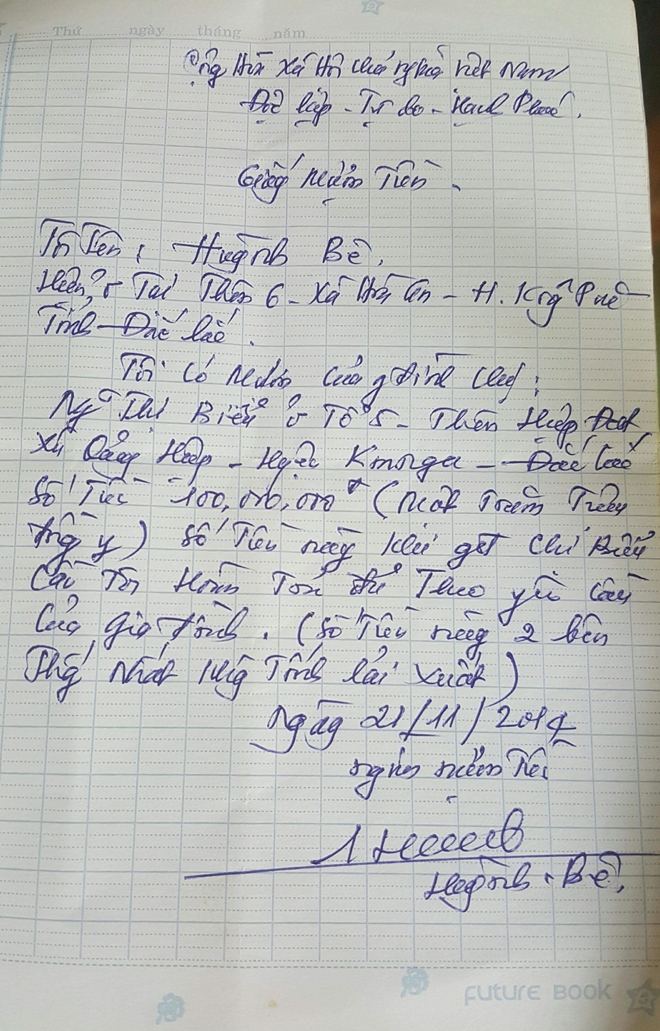 Thứ ngày tháng năm
Cộng Hòa Xã Hội Chủ nghĩa Việt Nam
Độc lập - Tự do - Hạnh Phúc.
Giấy Mượn Tiền.
Tôi Tên: Huỳnh Bê.
Hiện ở Tại Thôn 6 - Xã Hòa - H. Krông
Tỉnh - Đắc lắc.
Tôi có Mượn của g đình Chị:
Ngô Thị Biểu ở Tổ 5 - Thôn Hiệp Đoàn
Xã Quảng Hiệp - Huyện Kmơrga - Đắc lắc
Số Tiền 100,000,000đ (Một Trăm Triệu
đồng y) Số Tiền này khi gđ chị Biểu
Cần Tôi Hoàn Trả đủ Theo yêu cầu
Của gia đình. (Số Tiền này 2 bên
Thống Nhất không Tính lãi xuất)
Ngày 21/11/2014
người mượn Tiền
Huỳnh Bê.
FUTURE BOOK